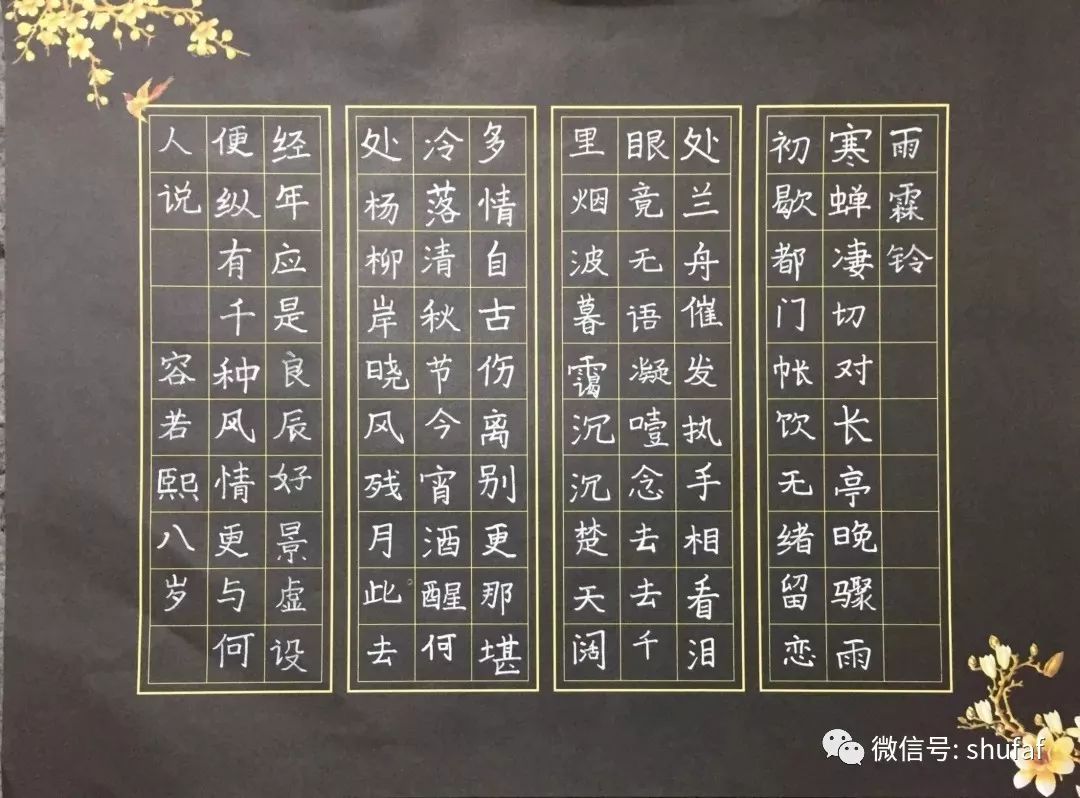 雨霖铃
寒蝉凄切对长亭晚骤雨
初歇都门帐饮无绪留恋
处兰舟催发执手相看泪
眼竟无语凝噎念去去千
里烟波暮霭沉沉楚天阔
多情自古伤离别更那堪
冷落清秋节今宵酒醒何
处杨柳岸晓风残月此去
经年应是良辰好景虚设
便纵有千种风情更与何
人说 容若熙八岁
微信号: shufaf